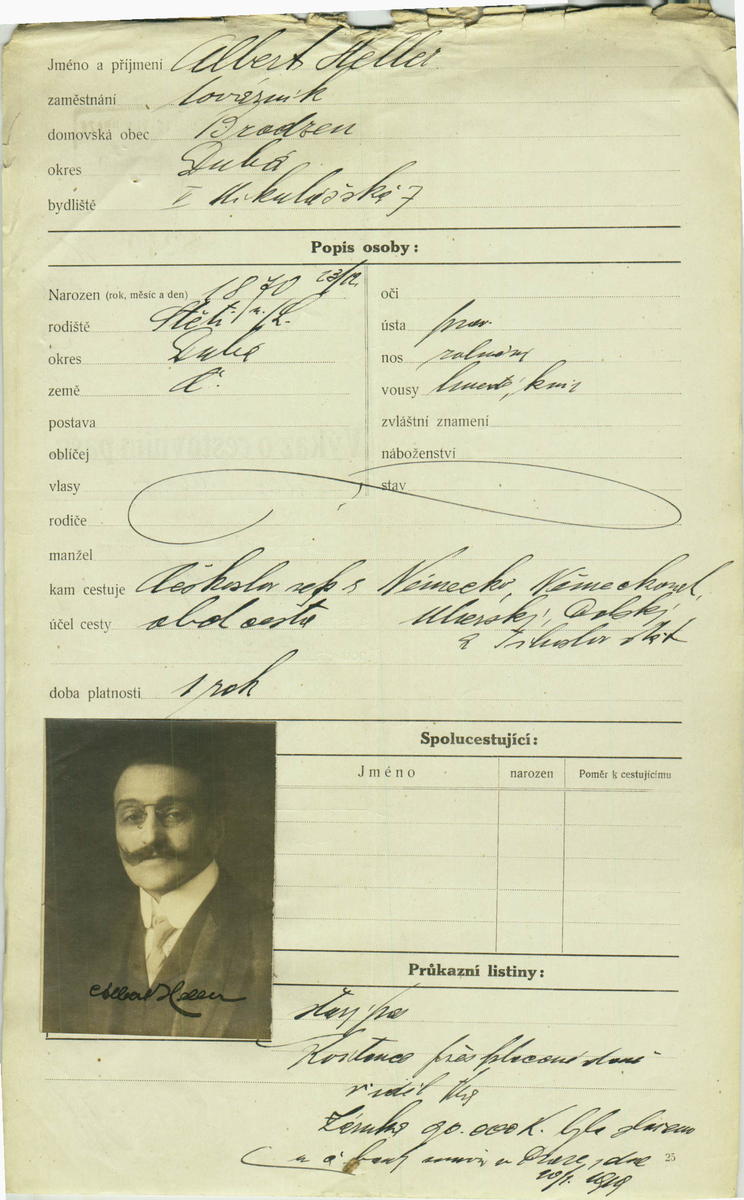 Jméno a příjmení Albert Heller
zaměstnání továrník
domovská obec Brodzen
okres Dubá
bydliště V Mikulášská 7
Popis osoby:
Narozen (rok, měsíc a den) 1870 23/12.
rodiště Štětí n./L.
okres Dubá
země Č.
postava
obličej
vlasy
rodiče
manžel
oči
ústa prav.
nos
vousy
zvláštní znamení
náboženství
stav
kam cestuje Českoslov rep Německo,
účel cesty obch cesta Uherský, Polský
a Jihoslov stát
doba platnosti 1 rok
Spolucestující:
Jméno narozen Poměr k cestujícímu
Albert Heller
Průkazní listiny:
starý pas
daně
Záruka 90.000 K. byla
v Praze, dne
1919
25